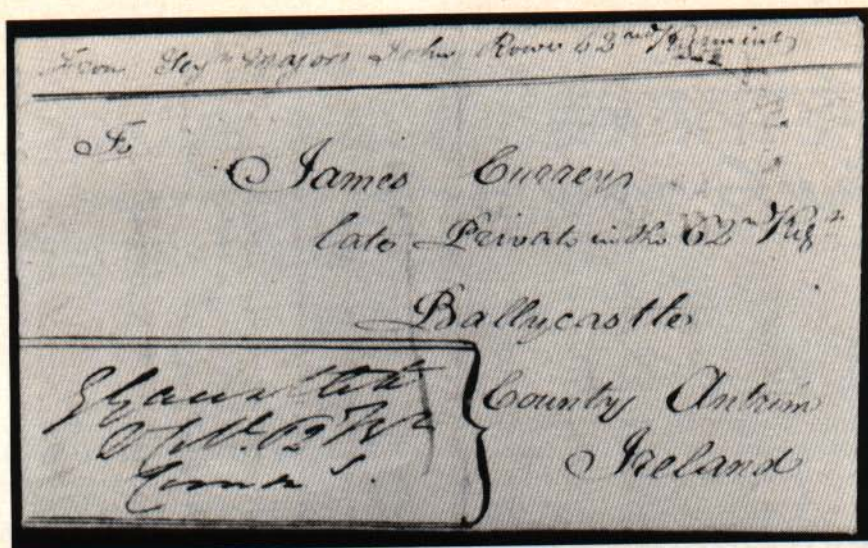 From Serj.t Major John Rowe 62nd Regiment
To
James Currey
late Private in the 62nd Reg.t
Ballycastle
County Antrim
Ireland
62
Comm